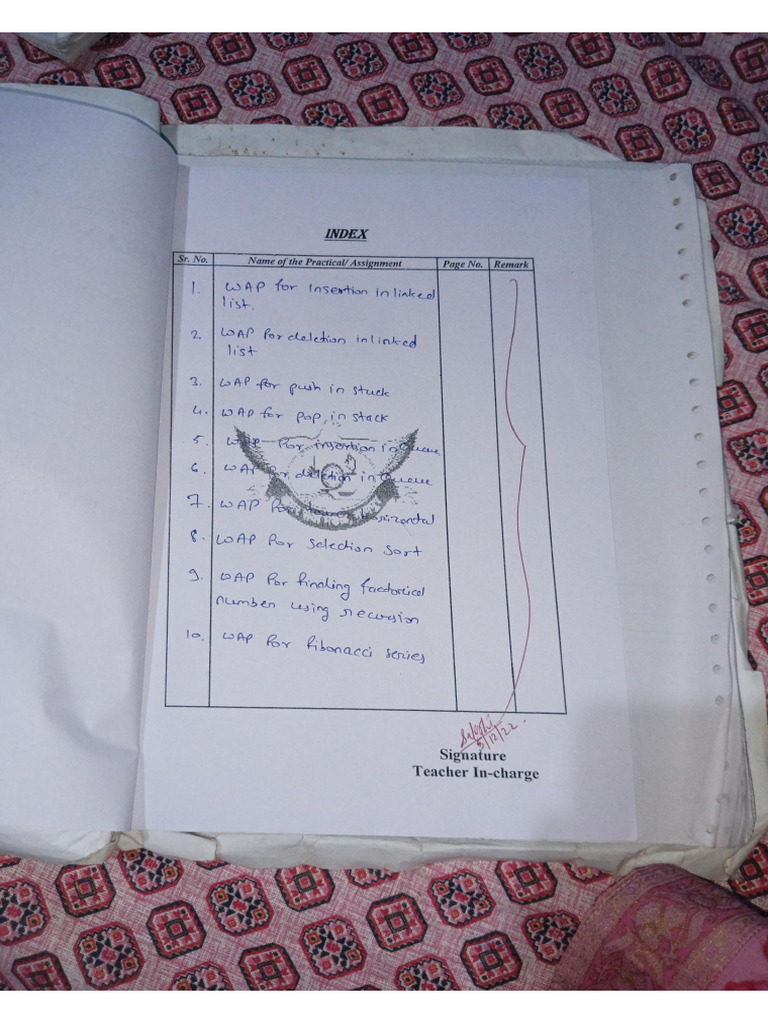 INDEX
Sr. No. Name of the Practical/ Assignment Page No. Remark
1. WAP for Insertion in linked
list.
2. WAP for deletion in linked
list
3. WAP for push in stack
4. WAP for pop in stack
5. WAP for insertion in Queue
6. WAP for deletion in Queue
7. WAP for tower horizontal
8. WAP for selection sort
9. WAP for finding factorical
number using recursion
10. WAP for fibonacci series
5/12/22.
Signature
Teacher In-charge